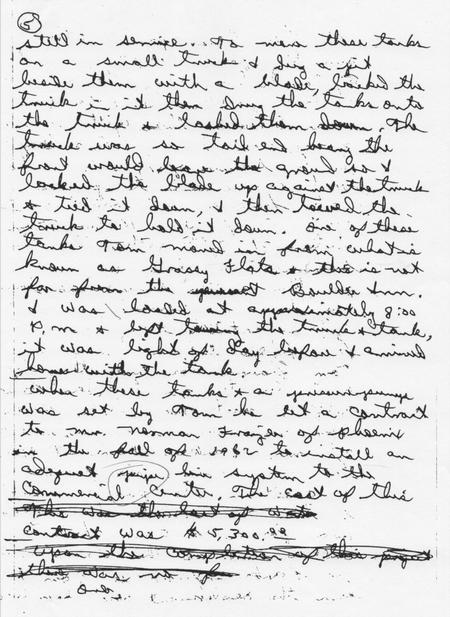 5
still in service. To move these tanks
on a small truck I dug a pit
beside them with a blade, backed the
truck in it then drug the tanks onto
the truck & lashed them down. The
truck was so tail end heavy the
front would leave the ground so I
backed the blade up against the truck
& tied it down, & then towed the
truck to hold it down. One of these
tanks Tom moved in from what is
known as Grassy Flats & this is not
far from the Boulder Inn.
I was loaded at approximately 8:00
P.m & left towing the truck & tank,
it was light of Day before I arrived
home with the tank
when these tanks & a pressure pump
was set by Tom he let a contract
to Mr. Norman Frazier of Phoenix
in the fall of 1962 to install an
adequet line system to the
Commercial Center. The cost of this
This was the last of
contract was $5,300.00
Upon the completion of this project
there was no